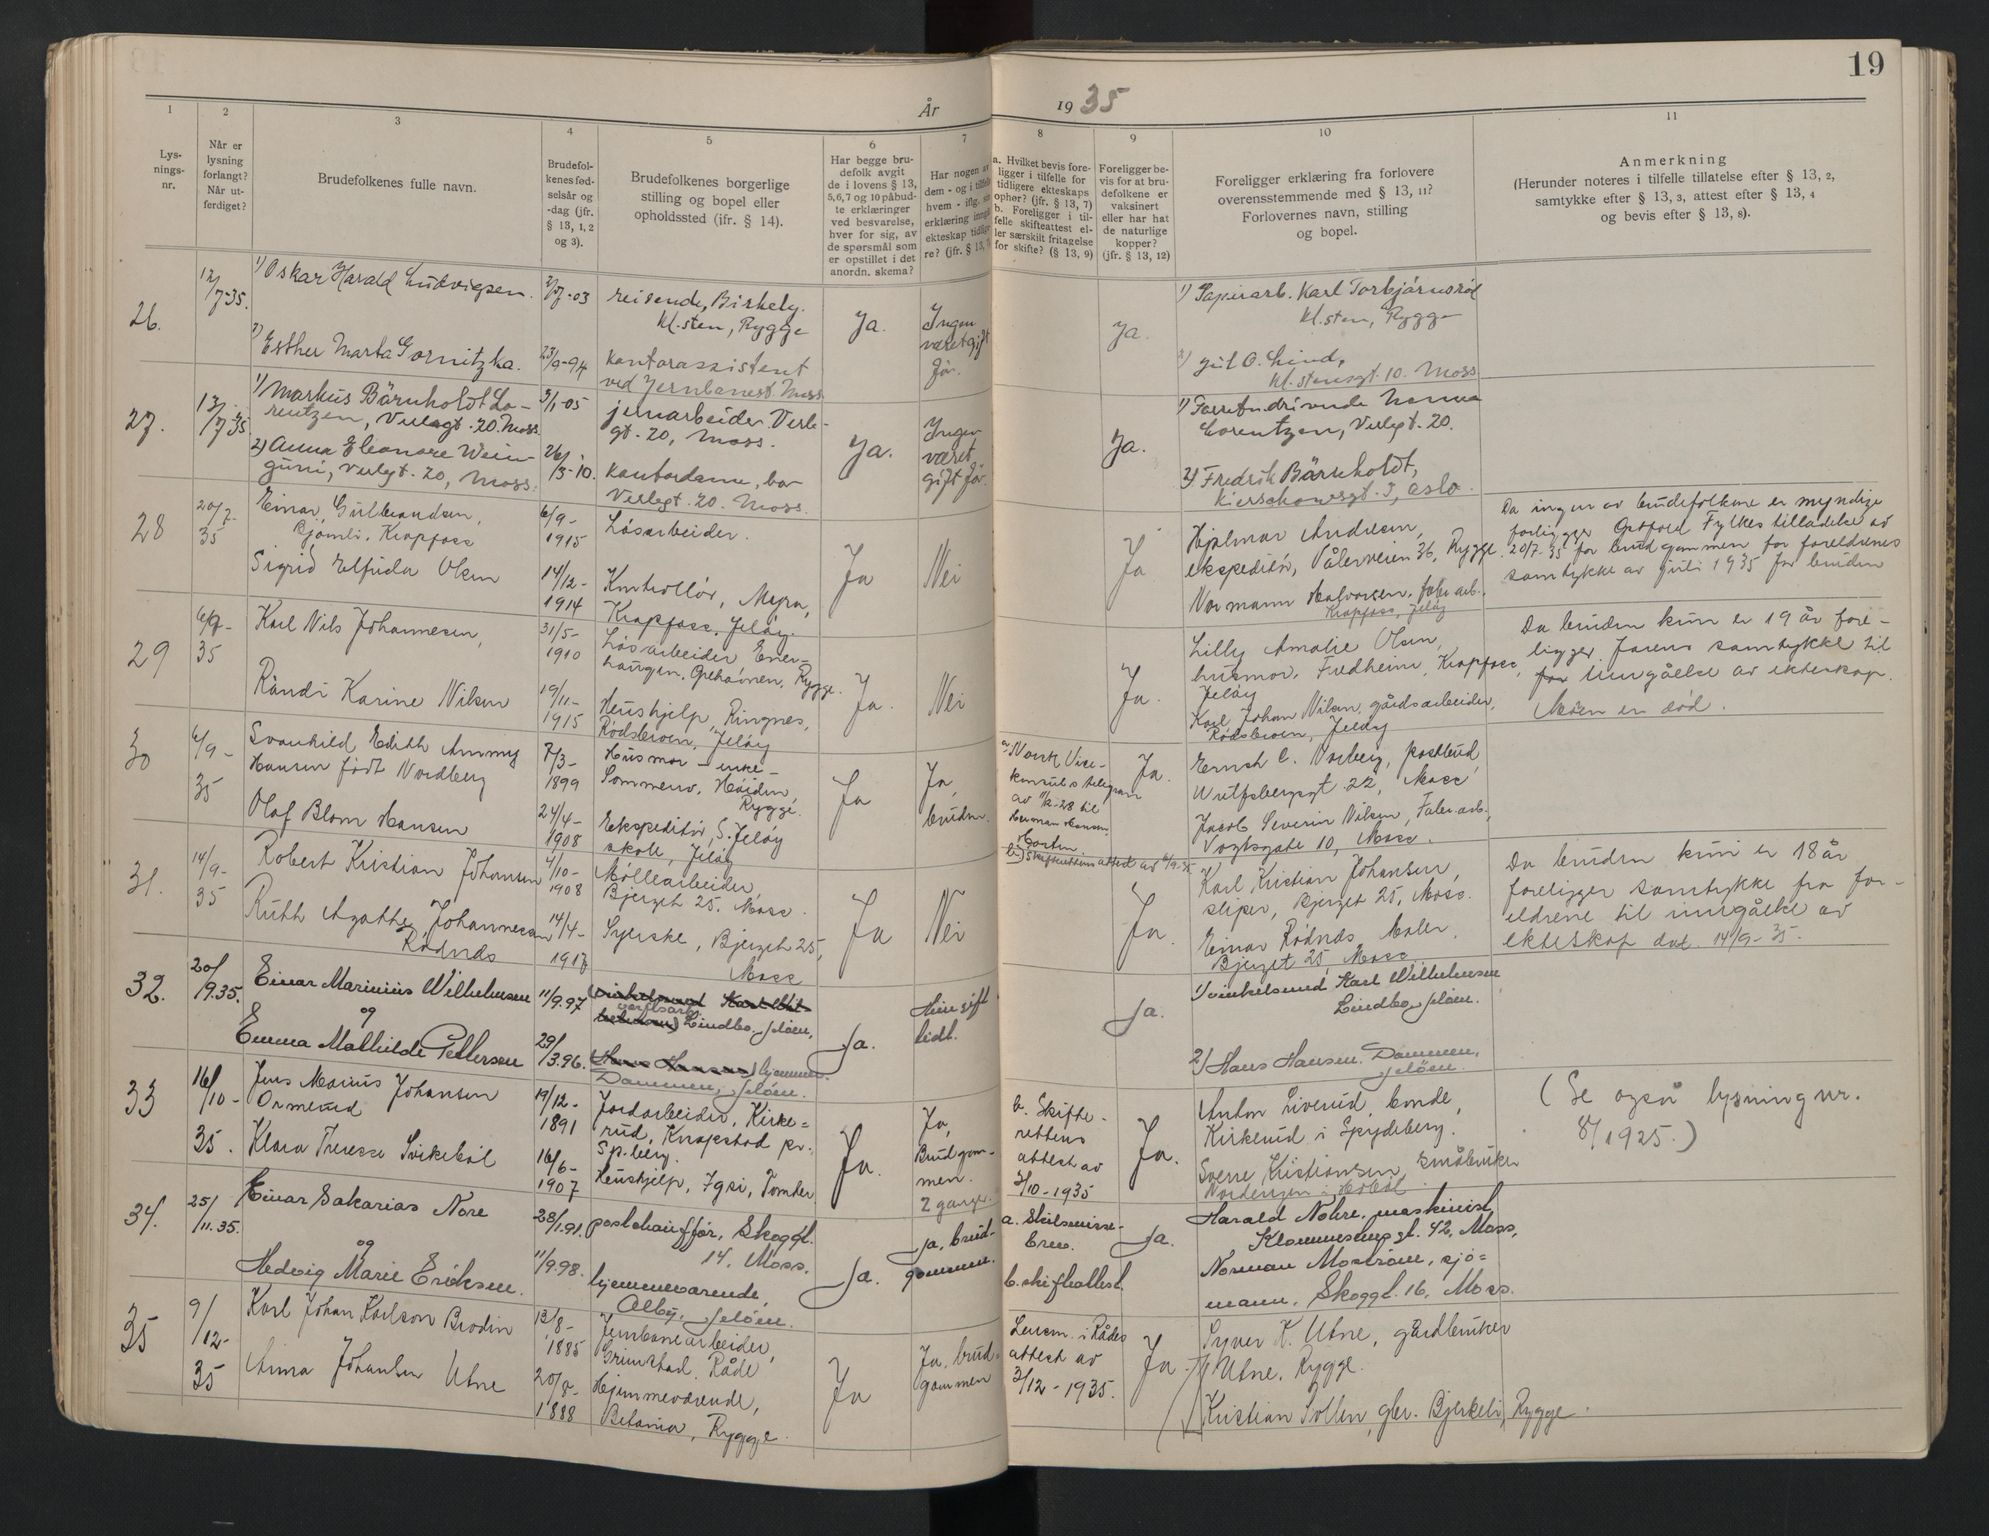 19
År
19 35
1
2
3
4
5
6
7
8
9
10
11
Lys-
nings-
nr.
Når er
lysning
forlangt?
Når ut-
ferdiget?
Brudefolkenes fulle navn.
Brudefol-
kenes fød-
selsår og
-dag (jfr.
§ 13, 1, 2
og 3).
Brudefolkenes borgerlige
stilling og bopel eller
opholdssted (ifr. § 14).
Har begge bru-
defolk avgit
de i lovens § 13,
5,6,7 og 10 påbud-
te erklæringer
ved besvarelse,
hver for sig, av
de spørsmål som
er opstillet i det
anordn. skema?
Har nogen av
dem - og i tilfelle
hvem - iflg. sin
erklæring inngått
ekteskap tidlige-
re? (jfr. § 13, 7)
a. Hvilket bevis fore-
ligger i tilfelle for
tidligere ekteskaps
ophør? (jfr. § 13, 7)
b. Foreligger i til-
felle skifteattest el-
ler særskilt fritagelse
for skifte? (§ 13, 9)
Foreligger be-
vis for at bru-
defolkene er
vaksinert
eller har hat
de naturlige
kopper?
(jfr. § 13, 12)
Foreligger erklæring fra forlovere
overensstemmende med § 13, 11?
Forlovernes navn, stilling
og bopel.
Anmerkning
(Herunder noteres i tilfelle tillatelse efter § 13, 2,
samtykke efter § 13, 3, attest efter § 13, 4
og bevis efter § 13, 8).
26.
12/
7-35.
1) Oskar Harald Ludvigsen.
reisende, Birkely.
Kl. sten, Rygge
Ja.
Ingen
været gift
før.
Ja.
1) Papirarb. Karl Torbjørnsrød
Kl. sten, Rygge
Esther Marta Gornitzka.
23/9-94
kontorassistent
ved Jernbanest. Moss
2) Jul O. Lind,
Kl. stensgt 10. Moss
27.
12/
7-35
1) Markus Bärnholdt Lo-
rentzen, Verlegt. 20. Moss.
3/1-05
jernarbeider Verle-
gt. 20, Moss.
Ja.
Ingen
været
gift før.
Ja.
1) Forretn.drivende Nanna
Lorentzen, Verlegt. 20.
2) Anna Eleonore Wein-
guni, Verlegt. 20, Moss.
26/
3-10.
kontordame, bor
Verlegt. 20. Moss.
2) Fredrik Bärnholdt,
Kierschowsgt. 3, Oslo.
28
20/7-
35
Einar Gulbrandsen,
Bjømli, Krapfoss
6/9-
1915
Løsarbeider.
Ja
Nei
Ja
Hjalmar Andresen,
ekspeditør, Vålerveien 36, Rygge.
Da ingen av brudefolkene er myndige
foreligger Østfold Fylkes tilladelse av
20/7-35 for brudgommen for foreldrenes
samtykke av juli 1935 for bruden
Sigrid Elfrida Olsen
14/12-
1914
Kontrollør, Myra,
Krapfoss, Jeløy.
Normann Halvorsen, fabr.arb.
Krapfoss, Jeløy
29
6/9-
35
Karl Nils Johannesen,
31/5-
1910
Løsarbeider, Ener-
haugen, Grehavnen, Rygge.
Ja
Nei
Ja.
Lilly Amalie Olsen,
husmor, Fredheim, Krapfoss,
Jeløy
Da bruden kun er 19 år fore-
ligger farens samtykke til
for inngåelse av ekteskap.
Moren er død.
Randi Karine Nilsen
19/11-
1915
Hushjelp, Ringnes,
Rødsbroen, Jeløy
Karl Johan Nilsen, gårdsarbeider,
Rødsbroen, Jeløy
30
6/9-
35
Svanhild Edith Ammy
Hansen født Nordberg
7/3-
1899
Husmor - enke -
Sommero, Høiden,
Rygge.
Ja
Ja,
bruden.
a) Norsk Vise-
konsuls telegram
av 11/2-28 til
Herman Hansen,
Horten.
b) Skifterettens attest av 6/9-35
Ja.
Ernst C. Norberg, postbud
Wulfsbergsgt 22, Moss
Olaf Blom Hansen
24/4-
1908
Ekspeditør, S. Jeløy
skole, Jeløy
Jacob Severin Nilsen, Fabr.arb.,
Vogtsgate 10, Moss.
31.
14/9-
35
Robert Kristian Johansen
4/10-
1908
Møllearbeider,
Bjerget 25, Moss.
Ja
Nei
Ja.
Karl Kristian Johansen,
sliper, Bjerget 25, Moss.
Da bruden kun er 18 år
foreligger samtykke fra for-
eldrene til inngåelse av
ekteskap dat. 14/9-35.
Ruth Agathe Johannessen
Rødnæs
14/4-
1917
Syerske, Bjerget 25,
Moss
Einar Rødnæs Maler.
Bjerget 25, Moss
32.
20/
9.35.
Einar Marinius Wilhelmsen
og
11/9.97
verftsarb. Lindbo, Jeløen,
Ja.
Hein gift
tidl.
Ja.
1) vinkelsmed Karl Wilhelmsen
Lindbo, Jeløen.
Emma Mathilde Pettersen
29/
3.96.
(Hans Hansen) hjemmev.
Dammen, Jeløen.
2) Hans Hansen. Dammen,
Jeløen.
33
16/
10-
35.
Jens Marius Johansen
Ormerud
19/12-
1891
Jordarbeider, Kirke=
rud, Knapstad pr.
Sp.berg.
Ja.
Ja,
Brudgom-
men.
2 gange.
b. Skifte-
rettens
attest av
3/10-1935
Ja.
Anton Liverud, bonde,
Kirkerud i Spydeberg.
(Se også lysning nr.
8/1925.)
Klara Therese Svikebøl
16/6-
1907
Hushjelp, Igsi, Tomter
Sverre Kristiansen, småbruker
Nordengen i Hobøl.
34.
25/
11.35.
Einar Sakarias Nore
og
28/1.91.
postchauffør, Skoggt.
14, Moss.
Ja.
Ja, brud-
gommen.
a. Skilsmisse-
brev.
b. skifteattest.
Ja.
Harald Nohre, maskinist,
Klommestensgt. 42, Moss,
Hedvig Marie Eriksen.
11/9.98.
hjemmeværende,
Alby, Jeløen.
Norman Mostrøm, sjø=
mann, Skoggt. 16, Moss.
35
9/
12-
35
Karl Johan Karlson Brodin
13/8-
1885
Jernbanearbeider,
Grimstad, Råde
Ja
Ja, brud=
gommen
Lensm. i Rådes
attest av
3/12-1935.
Ja.
Syver K. Utne, gårdbruker
Utne, Rygge.
Anna Johansen Utne
20/8-
1888
Hjemmeværende,
Betania, Rygge.
Kristian Sollen, gbr. Bjerkeli, Rygge.